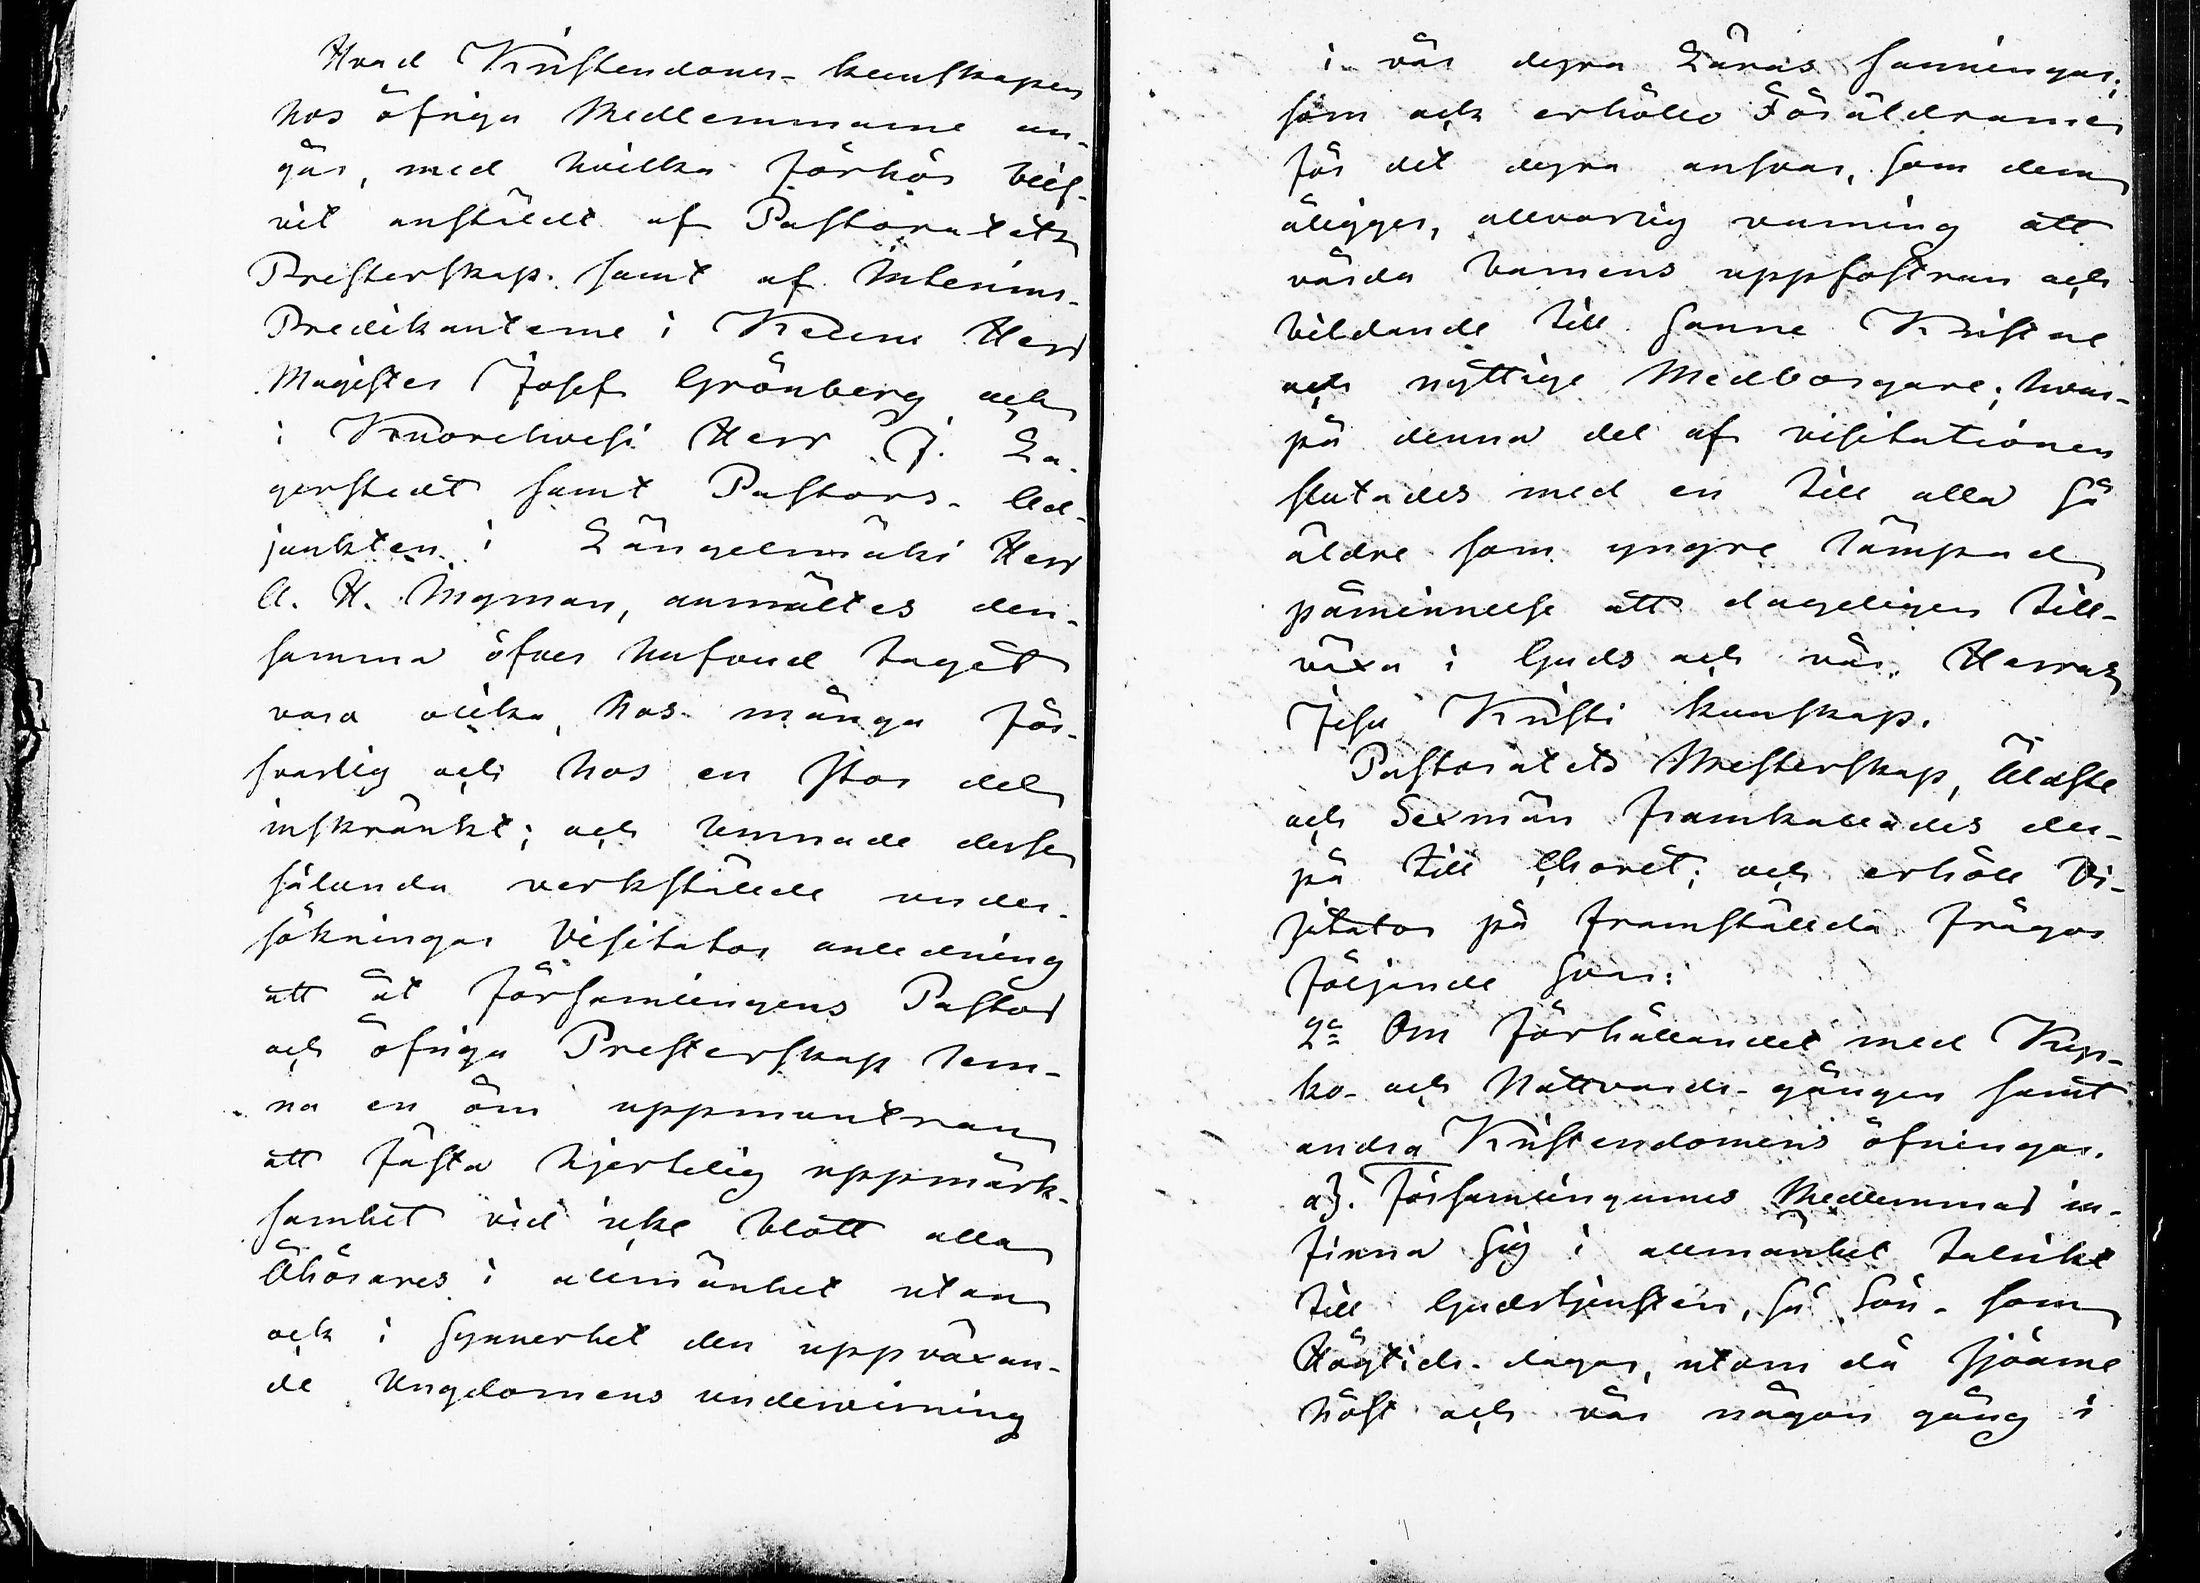 Hvad Kristendoms-kunskapen
hos öfriga Medlemmarne an-
går, med hvilka förhör blif-
vit anstäldt af Pastoratets
Presterskap samt af Interims-
Predikanterne i Keuru Herr
Magister Josef Grönberg och
i Kuorehvesi Herr J. La-
gerstedt samt Pastors-Ad-
junkten i Längelmäki Herr
A. H. Ingman, anmältes den-
samma öfver hufvud taget
vara olika, hos många för-
svarlig och hos en stor del
inskränkt; och lemnade desse
sålunda verkstälde under-
sökningar Visitator anledning
att åt församlingens Pastor
och öfriga Presterskap lem-
na en öm uppmuntran
att fästa hjertelig uppmärk-
samhet vid icke blott alla
Åhörares i allmänhet utan
ock i synnerhet den uppväxan-
de Ungdomens undervisning
i vår dyra Läras sanningar;
som ock erhöllo Föräldrarne
för det dyra ansvar, som dem
åligger, allvarlig varning att
vårda barnens uppfostran och
bildande till sanne Kristne
och nyttige Medborgare; hvar-
på denna del af visitationen
slutades med en till alla så
äldre som yngre lämpad
påminnelse att dageligen till-
växa i Guds och vår Herras
Jesu Kristi kunskap.
Pastoratets Presterskap, Äldste
och Sexmän framkallades der-
på till Choret; och erhöll Vi-
sitator på framstälda frågor
följande svar:
2o Om förhållandet med Kyr-
ko- och Nattvards-gången samt
andra Kristendomens öfningar.
a). Församlingarnes Medlemmar in-
finna sig i allmänhet talrikt
till Gudstjensten, så Sön- som
Högtids-dagar, utom då sjöarne
höst och vår någon gång i